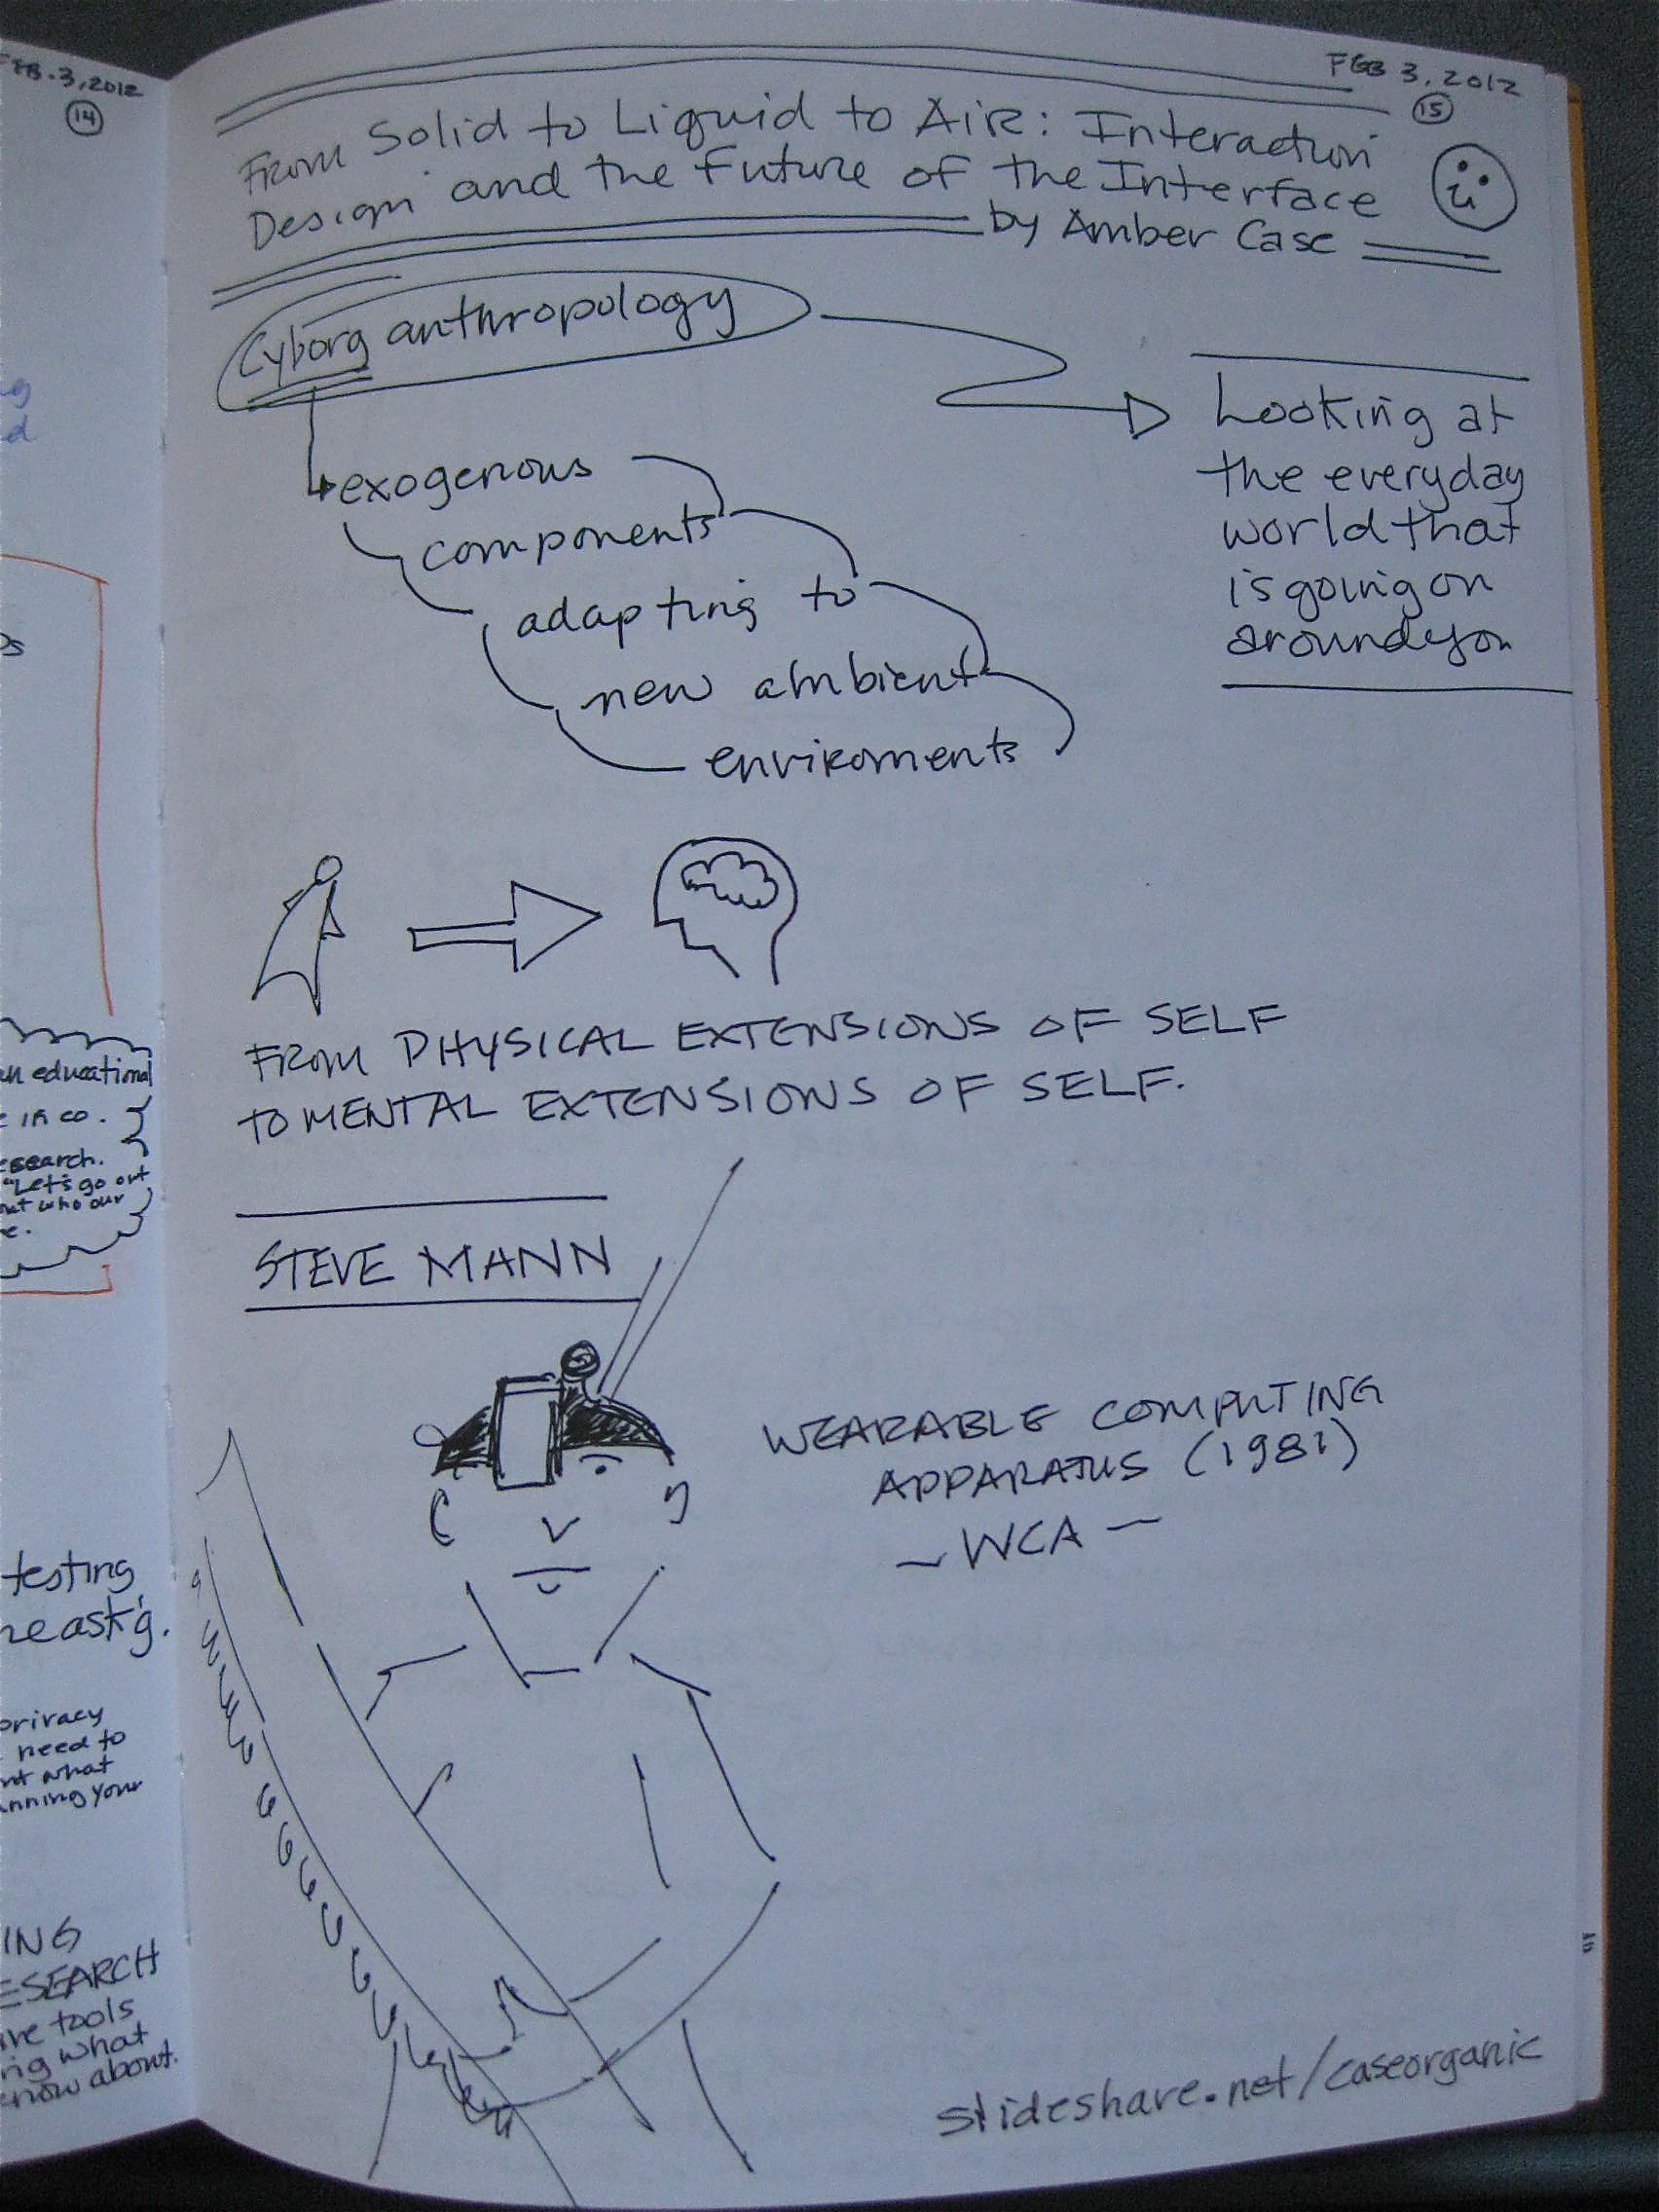 FEB. 3, 2012
14
an educational
in co.
"Let's go out
who our
testing
privacy
need to
what
your
ESEARCH
tools
what
know about.
FEB 3, 2012
15
From Solid to Liquid to Air: Interaction
Design and the Future of the Interface
by Amber Case
Cyborg anthropology
exogenous
components
adapting to
new ambient
enviroments
Looking at
the everyday
world that
is going on
around you
FROM PHYSICAL EXTENSIONS OF SELF
TO MENTAL EXTENSIONS OF SELF.
STEVE MANN
WEARABLE COMPUTING
APPARATUS (1981)
- WCA -
slideshare.net/caseorganic